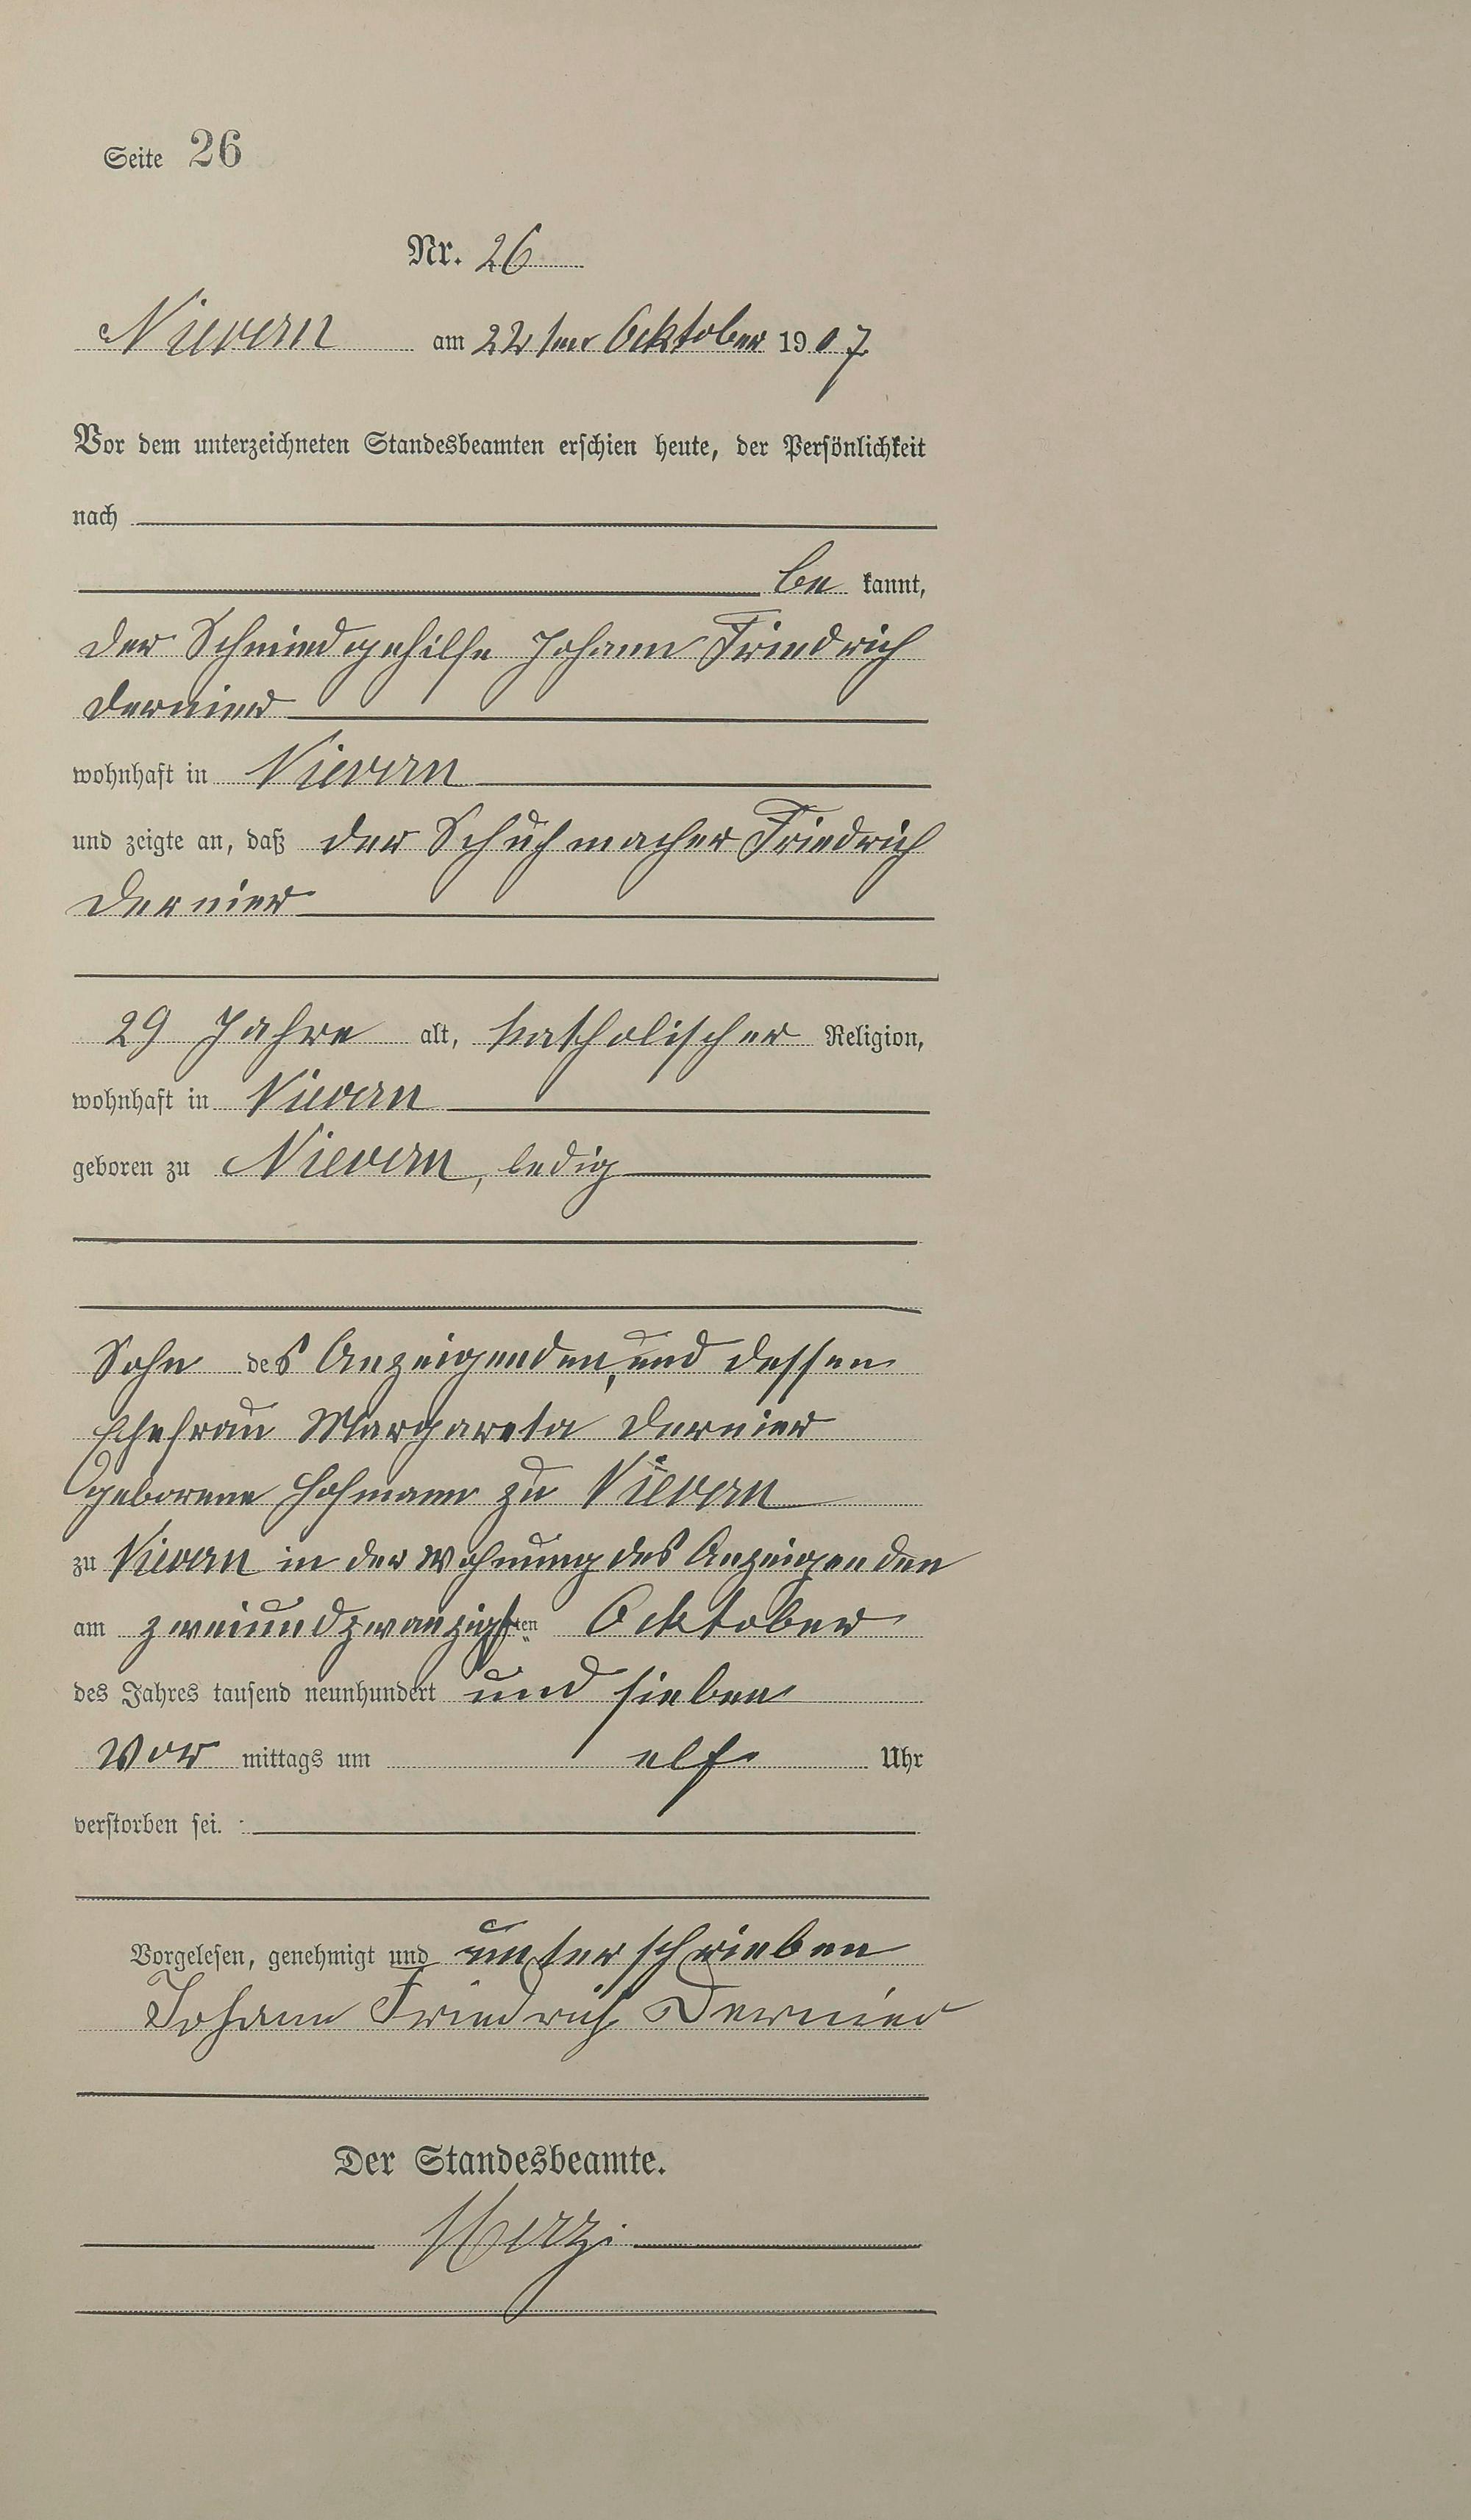 Seite 26
Nr. 26
Nievern am 22ten Ocktober 1907.
Vor dem unterzeichneten Standesbeamten erschien heute, der Persönlichkeit
nach
be kannt,
der Schmiedgehilfe Johann Friedrich
Dernier
wohnhaft in Nievern
und zeigte an, daß der Schuhmacher Friedrich
Dernier
29 Jahre alt, katholischer Religion,
wohnhaft in Nievern
geboren zu Nievern, ledig
Sohn des Anzeigenden, und dessen
Ehefrau Margareta Dernier
geborene Hofmann zu Nievern
zu Nievern in der Wohnung des Anzeigenden
am zweiundzwanzigsten Ocktober
des Jahres tausend neunhundert und sieben
Vor mittags um elf Uhr
verstorben sei.
Vorgelesen, genehmigt und unterschrieben
Johann Friedrich Dernier
Der Standesbeamte.